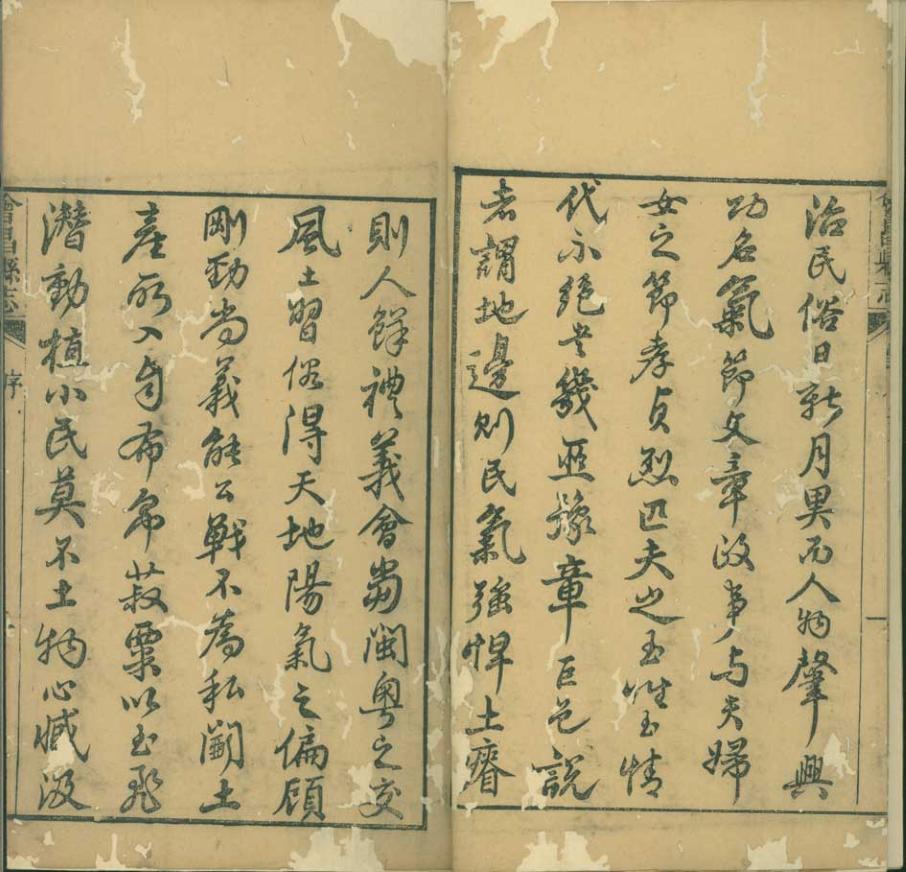 會昌縣志
治民俗日新月異而人物肇興
功名氣節文章政事與夫婦
女之節孝貞烈匹夫之至性至情
代不絕書幾亞豫章巨邑說
者謂地邊則民氣強悍土瘠
則人鮮禮義會當閩粤之交
風土習俗得天地陽氣之偏顧
剛勁尚義能公戰不為私鬭土
產所入自布帛菽粟以至飛
潛動植小民莫不土物心臧汲
會昌縣志
序